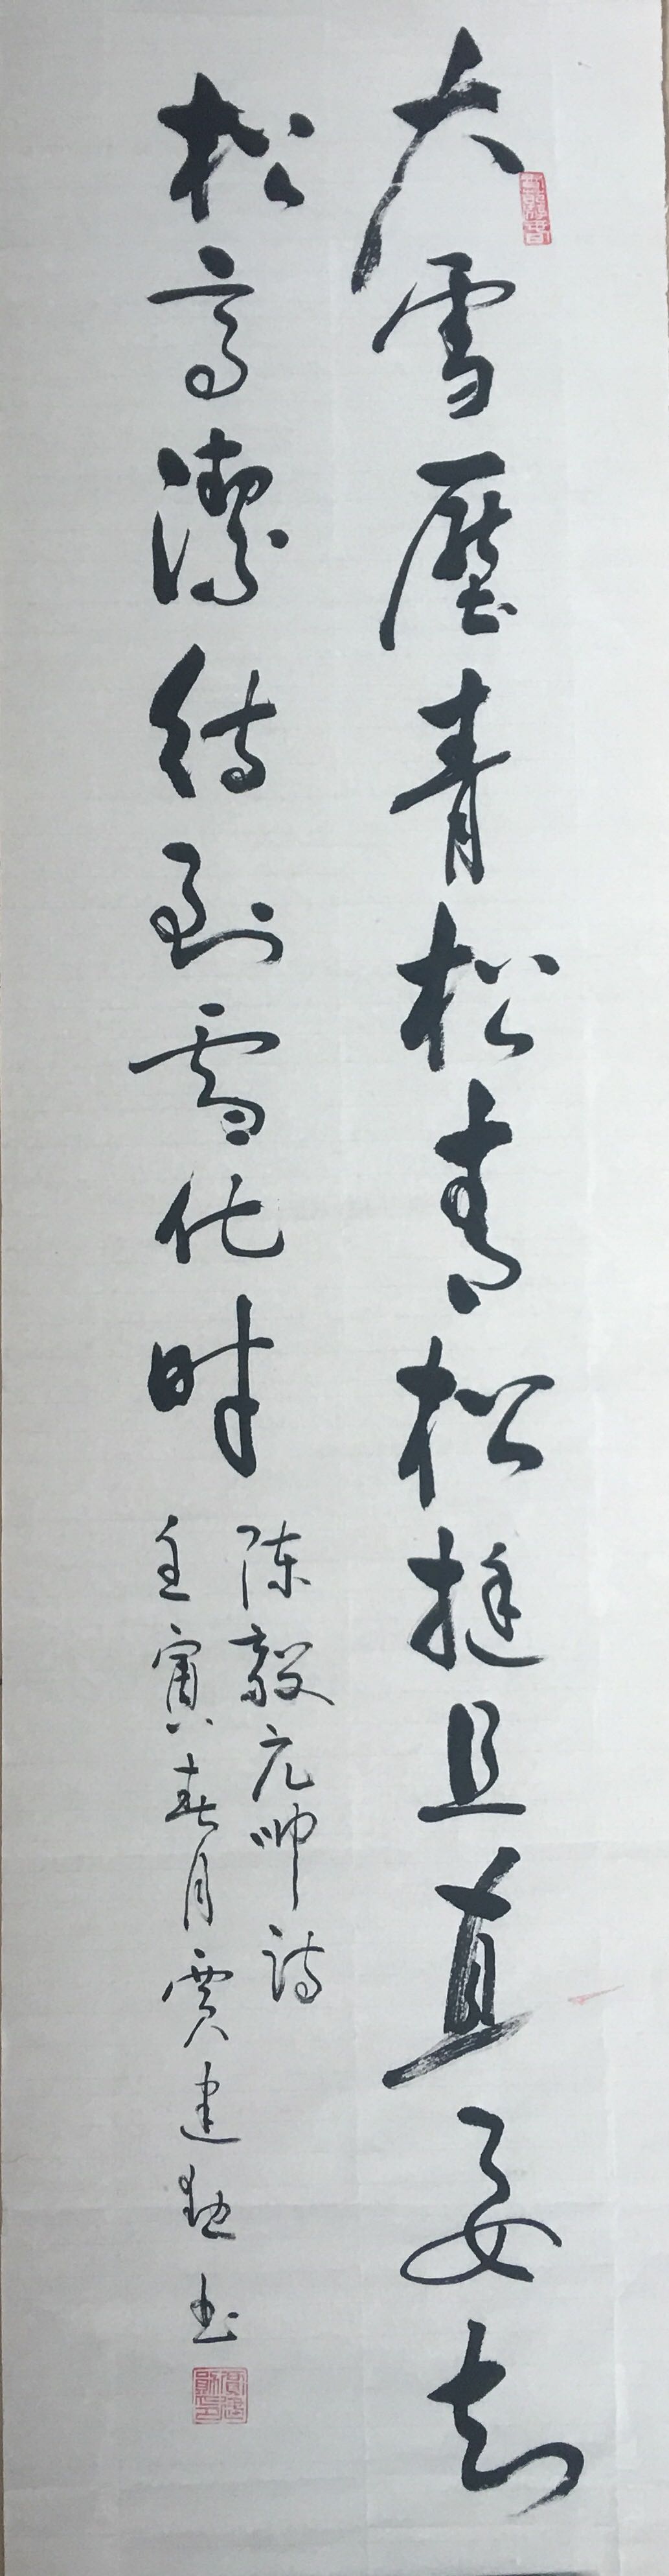 大雪壓青松青松挺且直要知
松高潔待到雪化时
陈毅元帅诗
壬寅春月贾建勋书